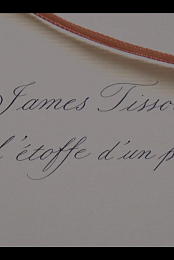 James Tisso
l'étoffe d'un p